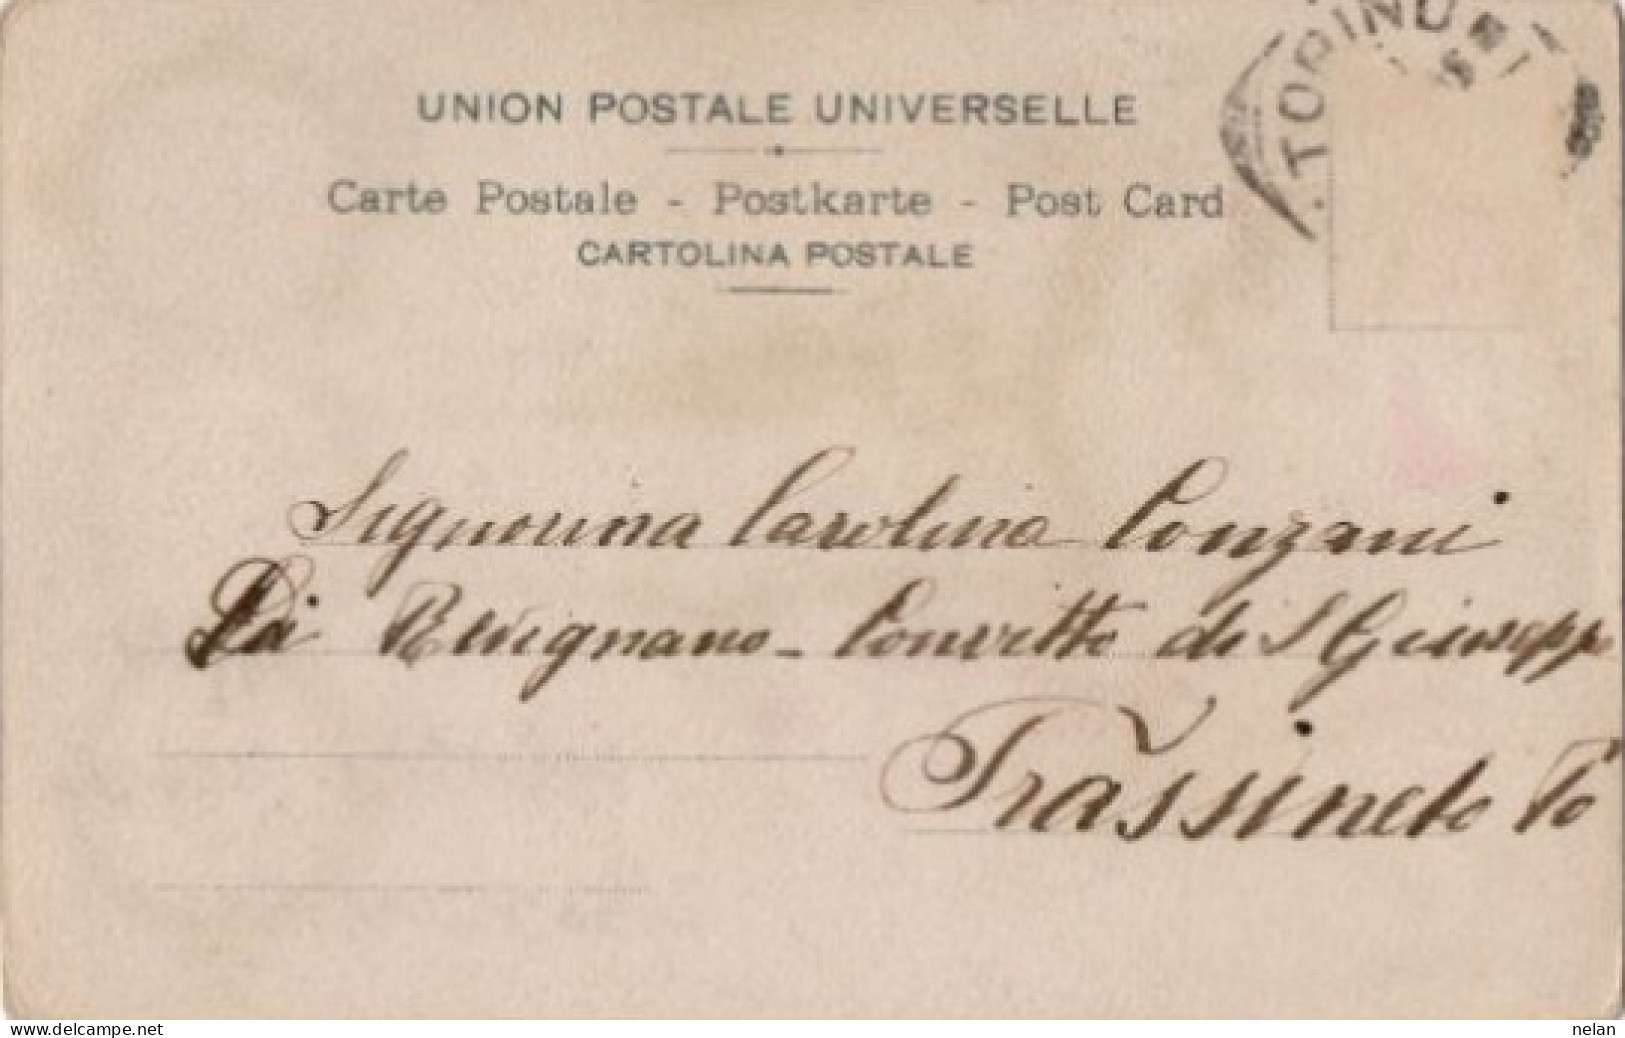 TORINO
UNION POSTALE UNIVERSELLE
Carte Postale - Postkarte - Post Card
CARTOLINA POSTALE
Signorina Carolina Conzani
Di Revignano - Convitto di S Giuseppe
Frassineto Po
www.delcampe.net
nelan